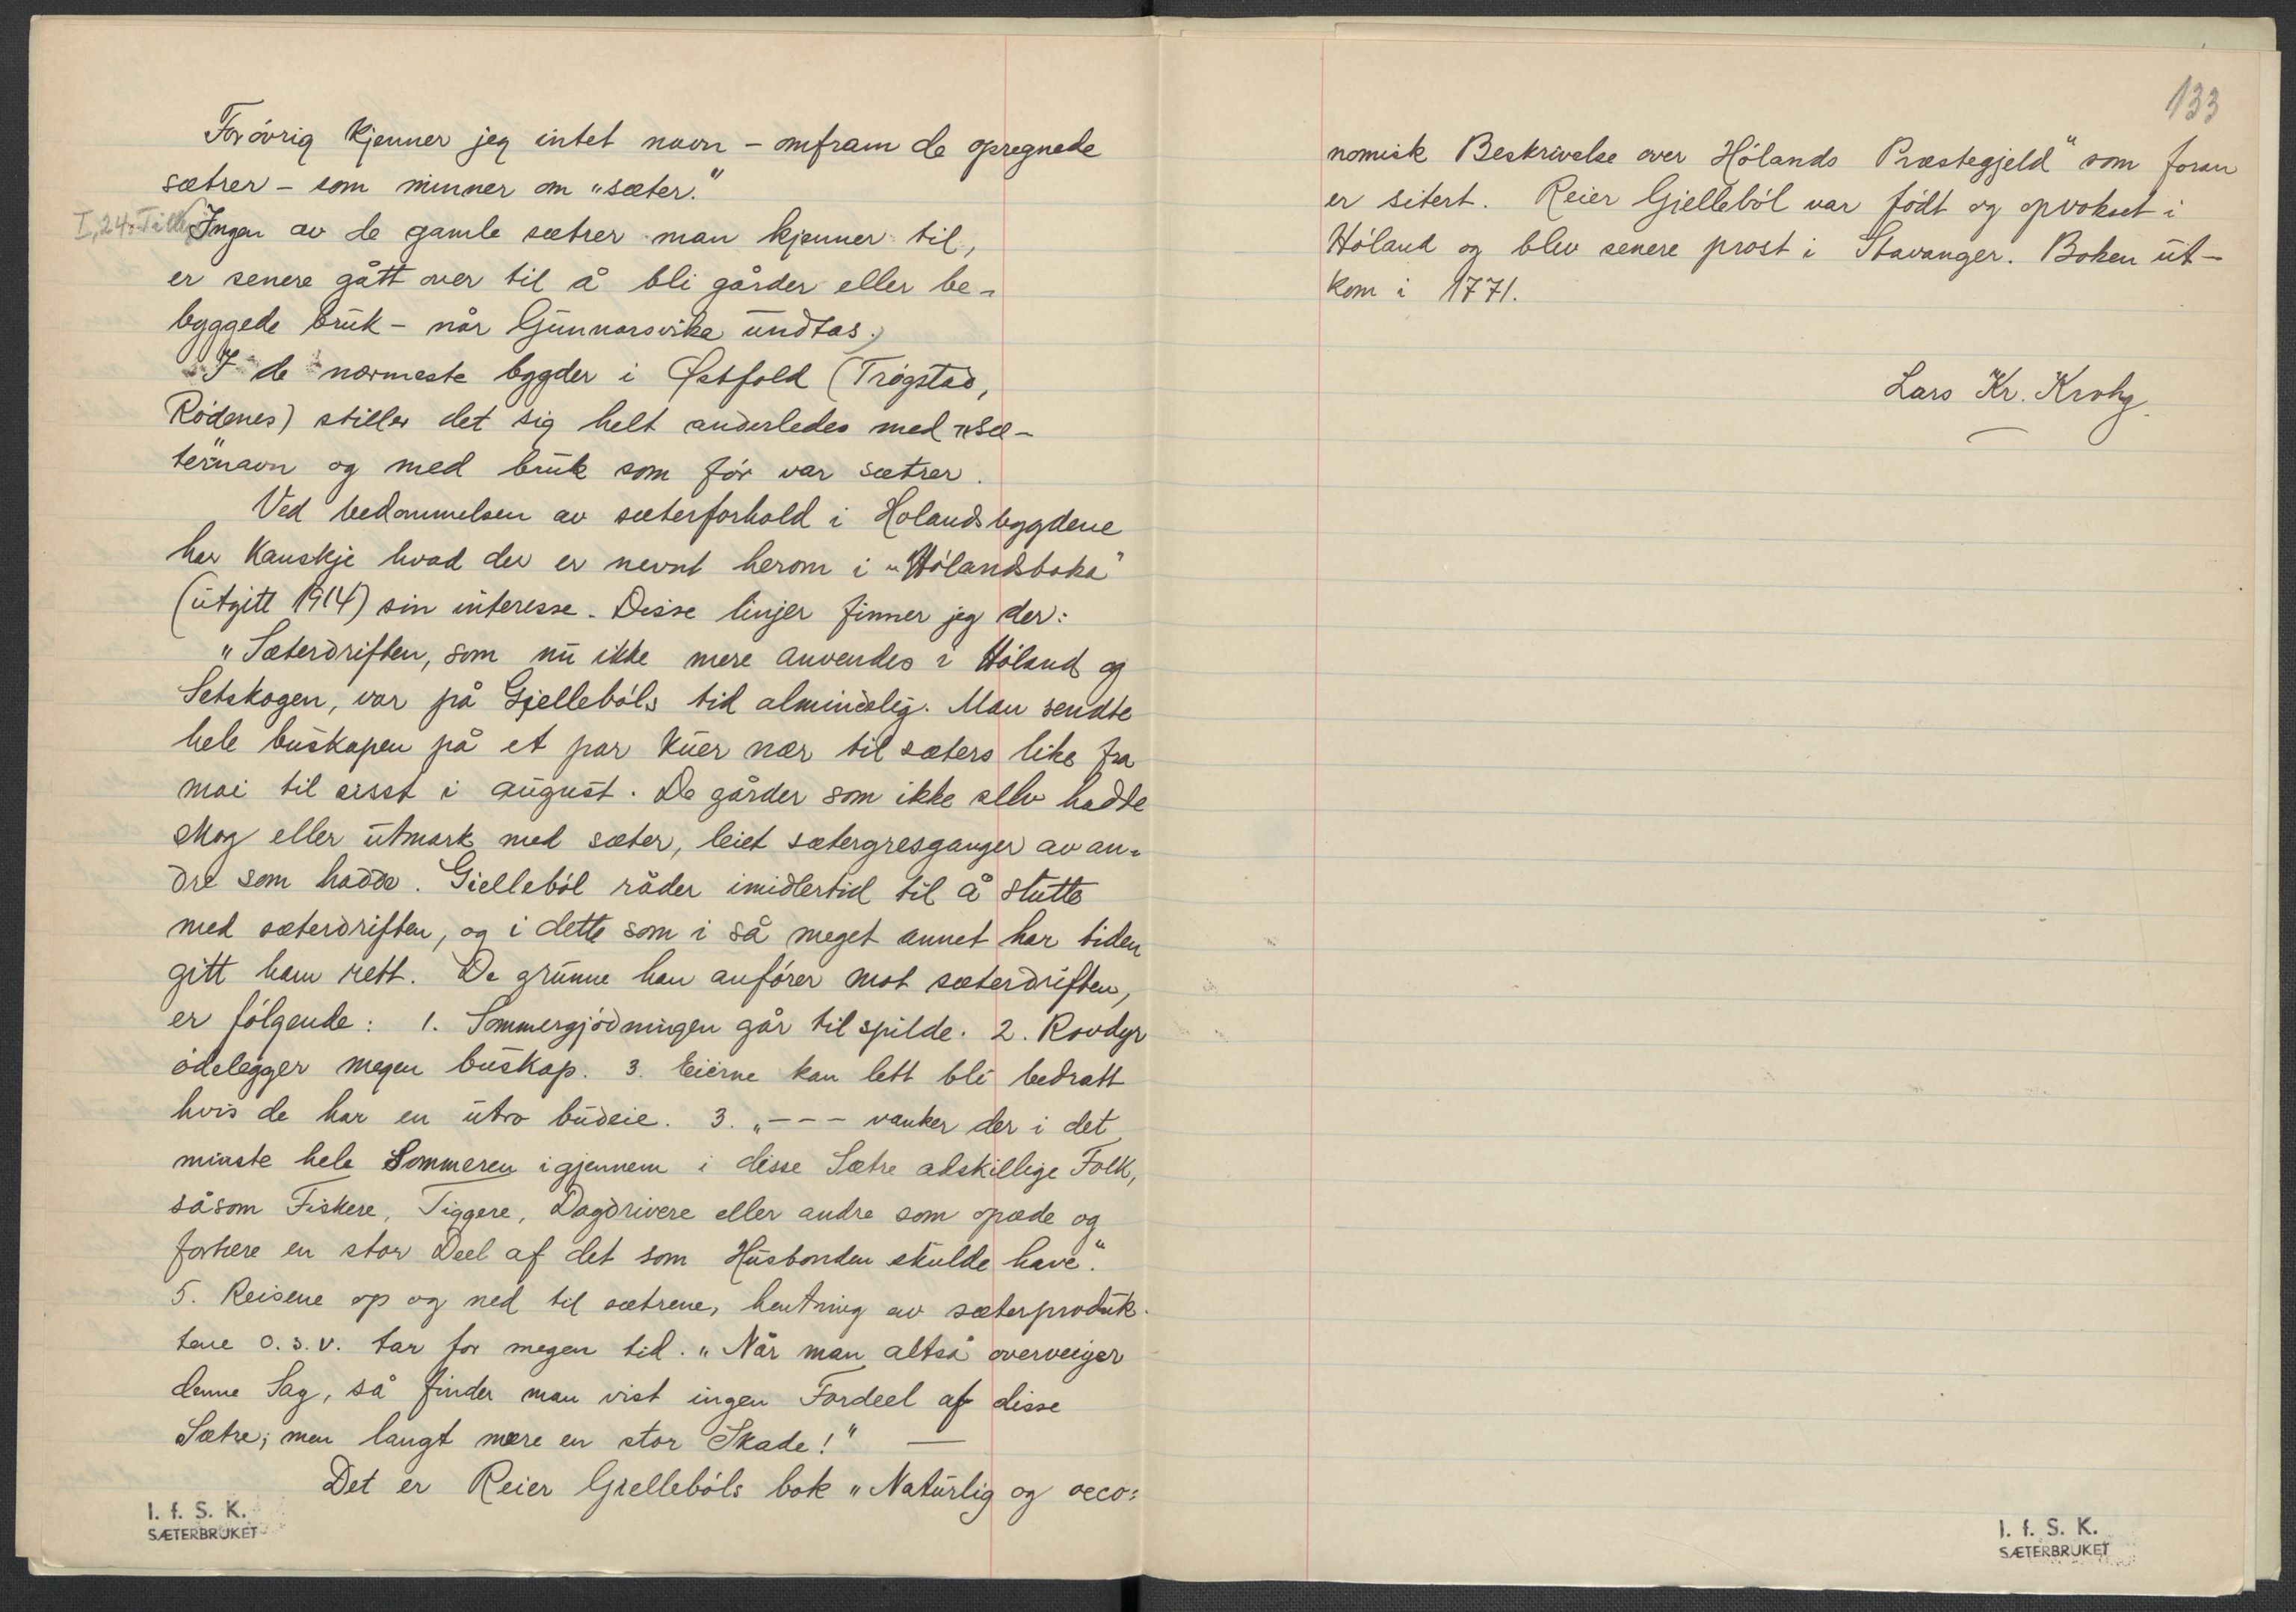 Forövrig kjenner jeg intet navn – omfram de opregnede
sætrer – som minner om „sæter."
I, 24. Tillegg
Ingen av de gamle sætrer man kjenner til,
er senere gått over til å bli gårder eller be-
byggede bruk – når Gunnarsvika undtas.
I de nærmeste bygder i Østfold (Trögstad,
Rödenes) stiller det sig helt anderledes med „sæ-
ter"navn og med bruk som för var sætrer.
Ved bedömmelsen av sæterforhold i Hölandsbygdene
har kanskje hvad der er nevnt herom i „Hölandsboka"
(utgitt 1914) sin interesse. Disse linjer finner jeg der:
„Sæterdriften, som nu ikke mere anvendes i Höland og
Setskogen, var på Gjelleböls tid almindelig. Man sendte
hele buskapen på et par kuer nær til sæters like fra
mai til sisst i august. De gårder som ikke selv hadde
skog eller utmark med sæter, leiet sætergresganger av an-
dre som hadde. Gielleböl råder imidlertid til å slutte
med sæterdriften, og i dette som i så meget annet har tiden
gitt ham rett. De grunne han anförer mot sæterdriften,
er fölgende: 1. Sommergjödningen går til spilde. 2. Rovdyr
ödelegger megen buskap. 3. Eierne kan lett bli bedratt
hvis de har en utro budeie. 3. „--- vanker der i det
minste hele Sommeren igjennem i disse Sætre adskillige Folk,
såsom Fiskere, Tiggere, Dagdrivere eller andre som opæde og
fortære en stor Deel af det som Husbonden skulde have".
5. Reisene op og ned til sætrene, hentning av sæterproduk-
tene o.s.v. tar for megen tid. „Når man altså overveiger
denne Sag, så finder man vist ingen Fordeel af disse
Sætre; men langt mere en stor Skade!" —
Det er Reier Gielleböls bok „Naturlig og oeco-
I. f. S. K.
SÆTERBRUKET
133
nomisk Beskrivelse over Hölands Præstegjeld" som foran
er sitert. Reier Gjelleböl var födt og opvokset i
Höland og blev senere prost i Stavanger. Boken ut-
kom i 1771.
Lars Kr. Krohg.
I. f. S. K.
SÆTERBRUKET